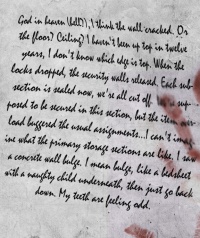 God in heaven (hell?), I think the wall cracked. Or
the floor? Ceiling? I haven't been up top in twelve
years, I don't know which edge is top. When the
locks dropped, the security walls released. Each sub-
section is sealed now, we're all cut off. is sup-
posed to be secured in this section, but the item over-
load buggered the usual assignments...I can't imag-
ine what the primary storage sections are like. I saw
a concrete wall bulge. I mean bulge, like a bedsheet
with a naughty child underneath, then just go back
down. My teeth are feeling odd.